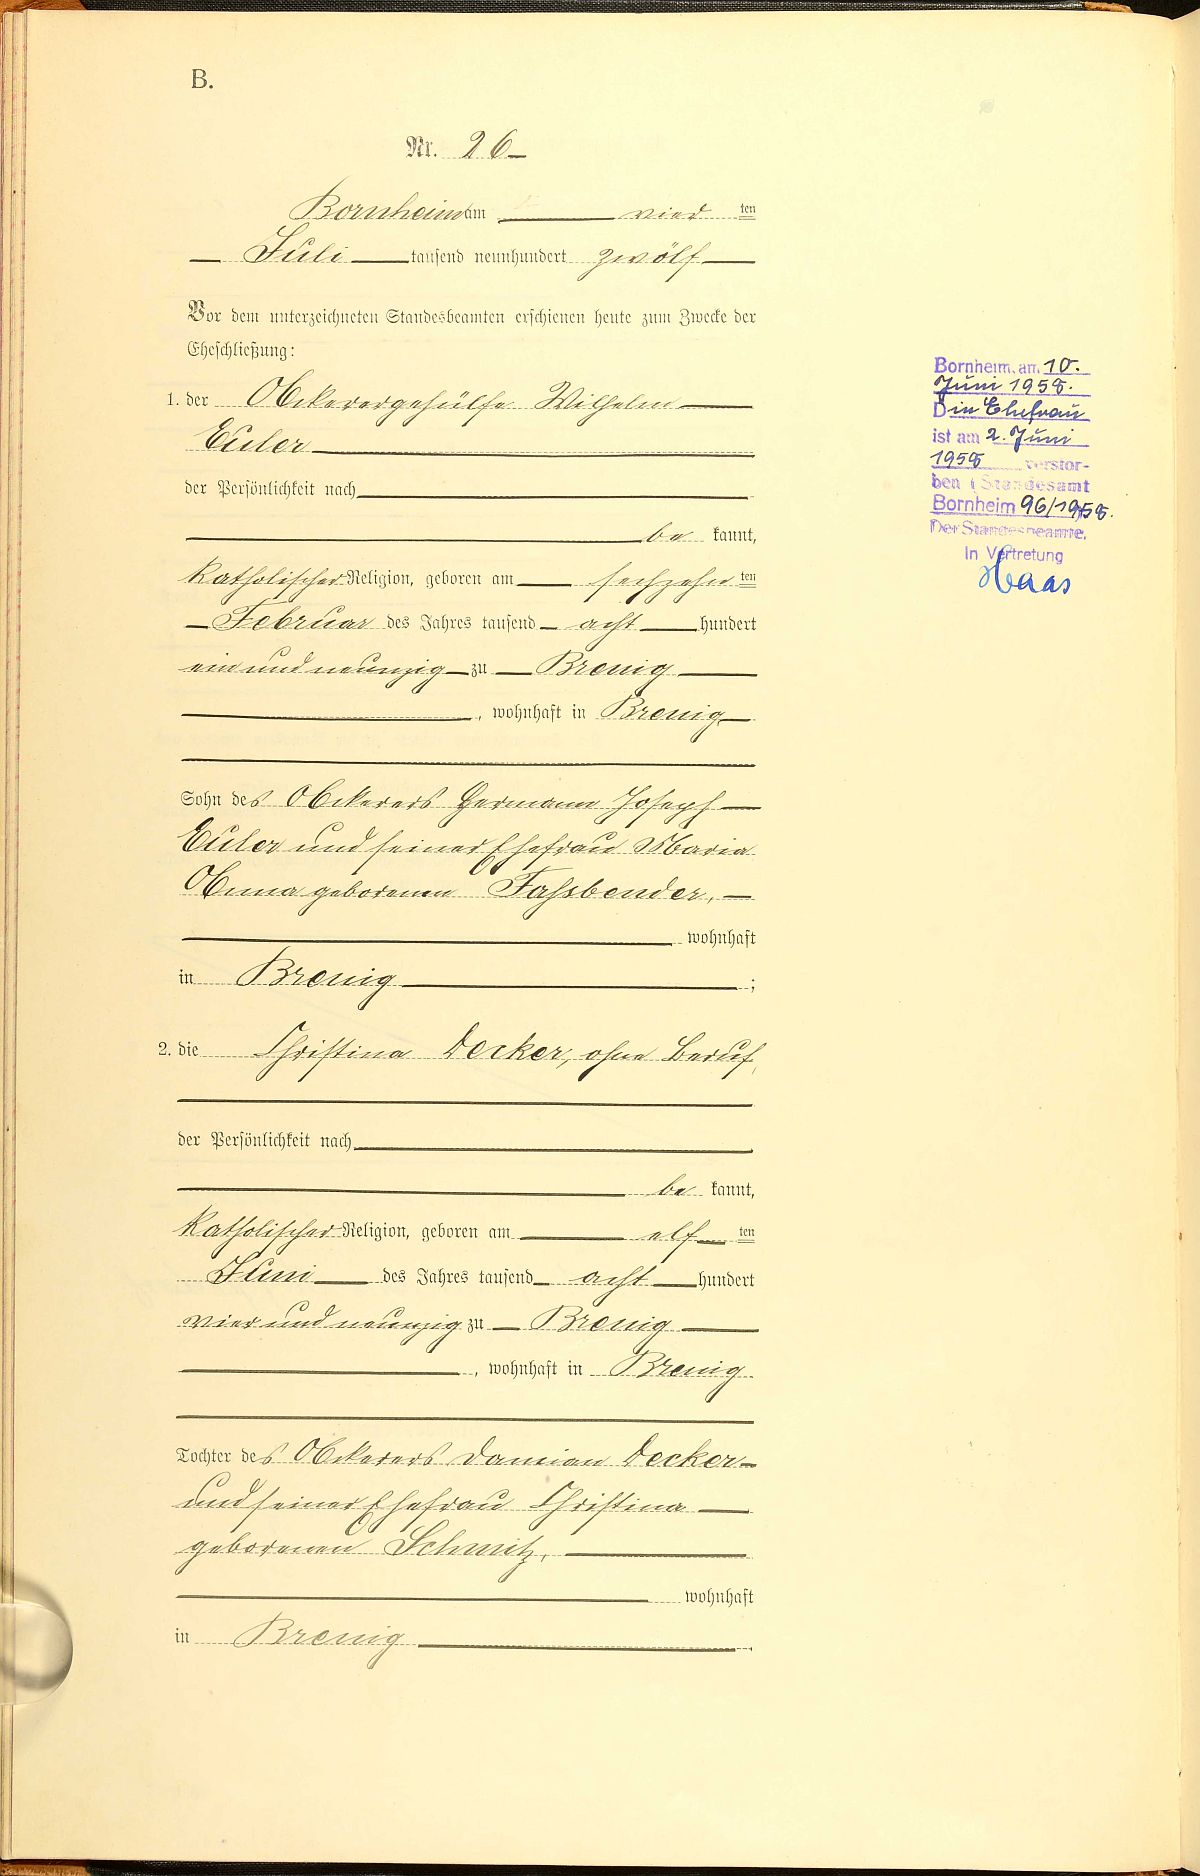 B.
Nr. 26
Bornheim am vierten
Juli tausend neunhundert zwölf
Vor dem unterzeichneten Standesbeamten erschienen heute zum Zwecke der
Eheschließung:
1. der Ackerergehülfe Wilhelm
Euler
der Persönlichkeit nach
be kannt,
katholischer Religion, geboren am sechzehnten
Februar des Jahres tausend acht hundert
ein und neunzig zu Brenig
, wohnhaft in Brenig
Sohn des Ackerers Hermann Joseph
Euler und seiner Ehefrau Maria
Anna geborenen Fassbender,
wohnhaft
in Brenig ;
2. die Christina Decker, ohne Beruf,
der Persönlichkeit nach
be kannt,
katholischer Religion, geboren am elften
Juni des Jahres tausend acht hundert
vier und neunzig zu Brenig
, wohnhaft in Brenig
Tochter des Ackerers Damian Decker
und seiner Ehefrau Christina
geborenen Schmitz,
wohnhaft
in Brenig
Bornheim, am 10.
Juni 1958.
Die Ehefrau
ist am 2. Juni
1958 verstor-
ben (Standesamt
Bornheim 96/1958.
Der Standesbeamte.
In Vertretung
Haas